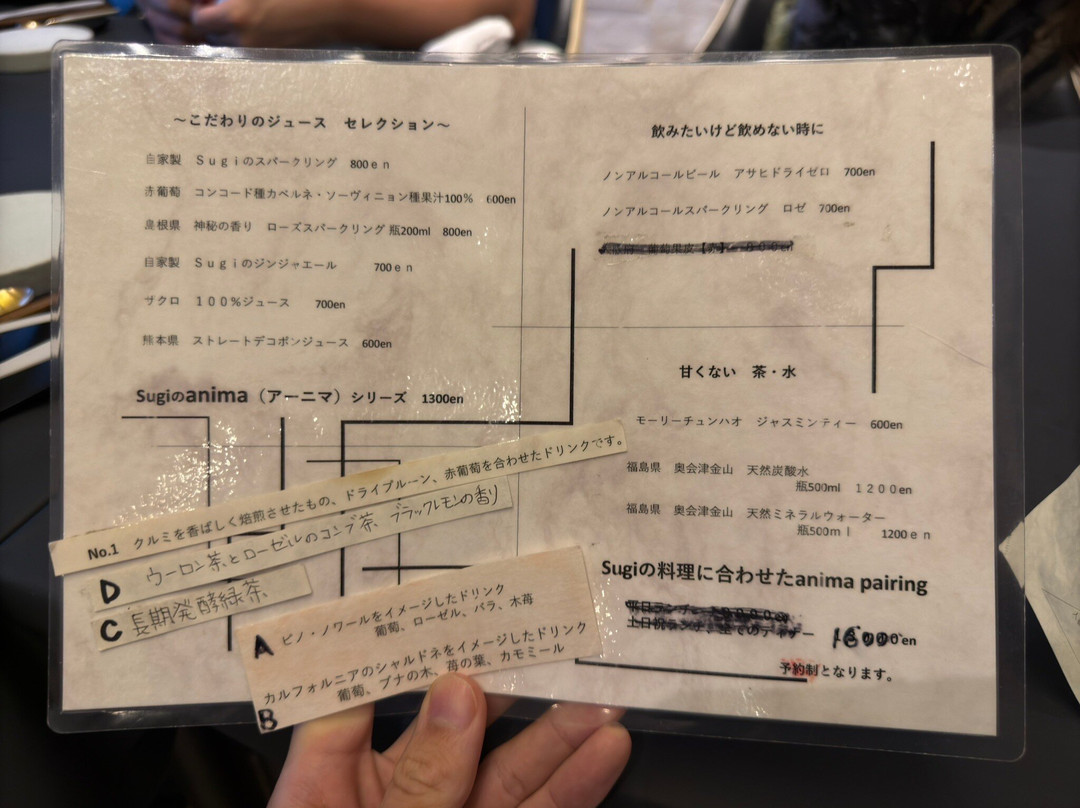 ～こだわりのジュース　セレクション～
自家製　Ｓｕｇｉのスパークリング　800ｅｎ
赤葡萄　コンコード種カベルネ・ソーヴィニョン種果汁100%　600en
島根県　神秘の香り　ローズスパークリング 瓶200ml　800en
自家製　Ｓｕｇｉのジンジャエール　700ｅｎ
ザクロ　１００％ジュース　700en
熊本県　ストレートデコポンジュース　600en
Sugiのanima（アーニマ）シリーズ　1300en
No.1　クルミを香ばしく焙煎させたもの、ドライプルーン、赤葡萄を合わせたドリンクです。
D　ウーロン茶とローゼルのコンブ茶、ブラックレモンの香り
C　長期発酵緑茶
A　ピノ・ノワールをイメージしたドリンク
葡萄、ローゼル、バラ、木苺
カルフォルニアのシャルドネをイメージしたドリンク
B　葡萄、ブナの木、苺の葉、カモミール
飲みたいけど飲めない時に
ノンアルコールビール　アサヒドライゼロ　700en
ノンアルコールスパークリング　ロゼ　700en
甘くない　茶・水
モーリーチュンハオ　ジャスミンティー　600en
福島県　奥会津金山　天然炭酸水
瓶500ml　１２００en
福島県　奥会津金山　天然ミネラルウォーター
瓶500ｍｌ　1200ｅｎ
Sugiの料理に合わせたanima pairing
土日祝ランチ、全てのディナー　en
予約制となります。